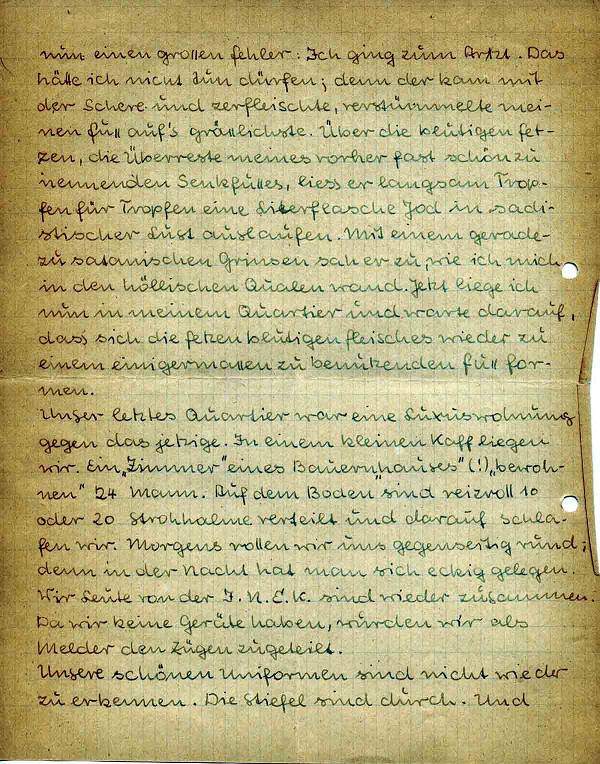 nun einen großen Fehler: Ich ging zum Artzt. Das
hätte ich nicht tun dürfen; denn der kam mit
der Schere und zerfleischte, verstümmelte mei-
nen Fuß auf's gräßlichste. Über die blutigen Fet-
zen, die Überreste meines vorher fast schön zu
nennenden Senkfußes, liess er langsam Trop-
fen für Tropfen eine Literflasche Jod in sadi-
stischer Lust auslaufen. Mit einem gerade-
zu satanischen Grinsen sah er zu, wie ich mich
in den höllischen Qualen wand. Jetzt liege ich
nun in meinem Quartier und warte darauf,
dass sich die Fetzen blutigen Fleisches wieder zu
einem einigermaßen zu benutzenden Fuß for-
men.
Unser letztes Quartier war eine Luxuswohnung
gegen das jetzige. In einem kleinen Kaff liegen
wir. Ein „Zimmer" eines Bauern„hauses" (!) „bewoh-
nen" 24 Mann. Auf dem Boden sind reizvoll 10
oder 20 Strohhalme verteilt und darauf schla-
fen wir. Morgens rollen wir uns gegenseitig rund;
denn in der Nacht hat man sich eckig gelegen.
Wir Leute von der J.N.E.K. sind wieder zusammen.
Da wir keine Geräte haben, wurden wir als
Melder den Zügen zugeteilt.
Unsere schönen Uniformen sind nicht wieder
zu erkennen. Die Stiefel sind durch. Und